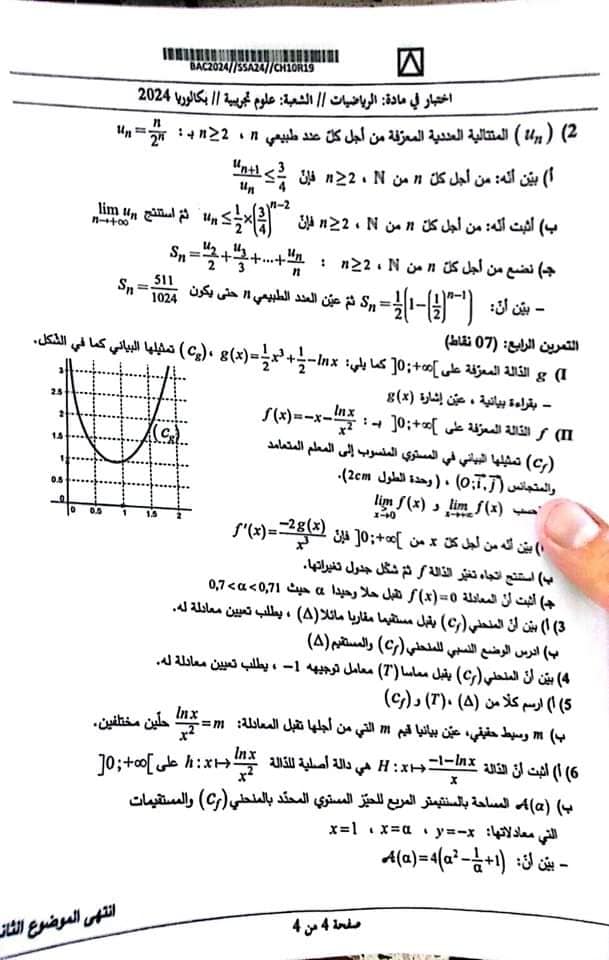 BAC2024//SSA24//CH10R19
اختبار في مادة: الرياضيات // الشعبة: علوم تجريبية // بكالوريا 2024
2) (uₙ) المتتالية العددية المعرّفة من أجل كلّ عدد طبيعي n ، n≥2 بـ: uₙ = n/2ⁿ
أ) بيّن أنّه: من أجل كلّ n من ℕ ، n≥2 فإنّ uₙ₊₁/uₙ ≤ 3/4
ب) أثبت أنّه: من أجل كلّ n من ℕ ، n≥2 فإنّ uₙ ≤ 1/2 × (3/4)ⁿ⁻² ثم استنتج lim uₙ n→+∞
جـ) نضع من أجل كلّ n من ℕ ، n≥2 : Sₙ = u₂/2 + u₃/3 + ... + uₙ/n
– بيّن أنّ: Sₙ = 1/2(1−(1/2)ⁿ⁻¹) ثمّ عيّن العدد الطبيعي n حتى يكون Sₙ = 511/1024
التمرين الرابع: (07 نقاط)
I) g الدّالة المعرّفة على ]0;+∞[ كما يلي: g(x) = 1/2 x³ + 1/2 − lnx ، (C_g) تمثيلها البياني كما في الشكل.
– بقراءة بيانية ، عيّن إشارة g(x)
3
2.5
2
1.5
1
0.5
0
0 0.5 1 1.5 2
(C_g)
II) f الدّالة المعرّفة على ]0;+∞[ بـ: f(x) = −x − lnx/x²
(C_f) تمثيلها البياني في المستوي المنسوب إلى المعلم المتعامد
والمتجانس (O;i⃗,j⃗) ، (وحدة الطول 2cm).
lim f(x) x→+∞ و lim f(x) x→0
بيّن أنّه من أجل كلّ x من ]0;+∞[ فإنّ f'(x) = −2g(x)/x³
ب) استنتج اتجاه تغيّر الدّالة f ثمّ شكّل جدول تغيّراتها.
جـ) أثبت أنّ المعادلة f(x)=0 تقبل حلا وحيدا α حيث 0,7<α<0,71
3) أ) بيّن أنّ المنحني (C_f) يقبل مستقيما مقاربا مائلا (Δ) ، يطلب تعيين معادلة له.
ب) ادرس الوضع النسبي للمنحني (C_f) والمستقيم (Δ)
4) بيّن أنّ المنحني (C_f) يقبل مماسا (T) معامل توجيهه −1 ، يطلب تعيين معادلة له.
5) أ) ارسم كلّا من (Δ) ، (T) و (C_f)
ب) m وسيط حقيقي، عيّن بيانيا قيم m التي من أجلها تقبل المعادلة: lnx/x² = m حلّين مختلفين.
6) أ) أثبت أنّ الدّالة H : x ↦ −1−lnx/x هي دالة أصلية للدّالة h : x ↦ lnx/x² على ]0;+∞[
ب) A(α) المساحة بالسنتيمتر المربع للحيّز المستوي المحدّد بالمنحني (C_f) والمستقيمات
التي معادلاتها: y=−x ، x=α ، x=1
– بيّن أنّ: A(α) = 4(α² − 1/α + 1)
صفحة 4 من 4
انتهى الموضوع